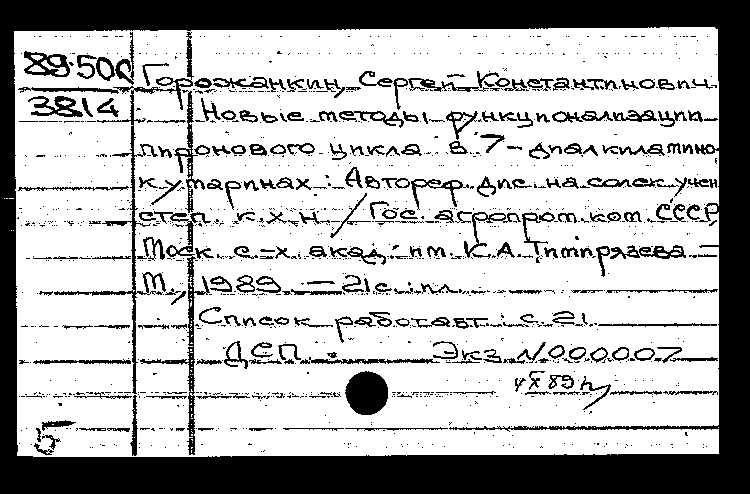 89-50
3814
Горожанкин, Сергей Константинович
Новые методы функционализации
пиронового цикла в 7-диалкиламино-
кумаринах : Автореф. дис. на соиск. учен.
степ. к. х. н. / Гос. агропром. ком. СССР,
Моск. с.-х. акад. им. К. А. Тимирязева. —
М., 1989. — 21 с. : ил.
Список работ авт. : с. 21
ДСП. Экз. N 000007
X 89
5